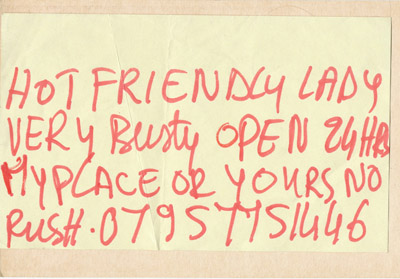 HOT FRIENDLY LADY
VERY Busty OPEN 24HRS
MY PLACE OR YOURS NO
RUSH. 07957751446